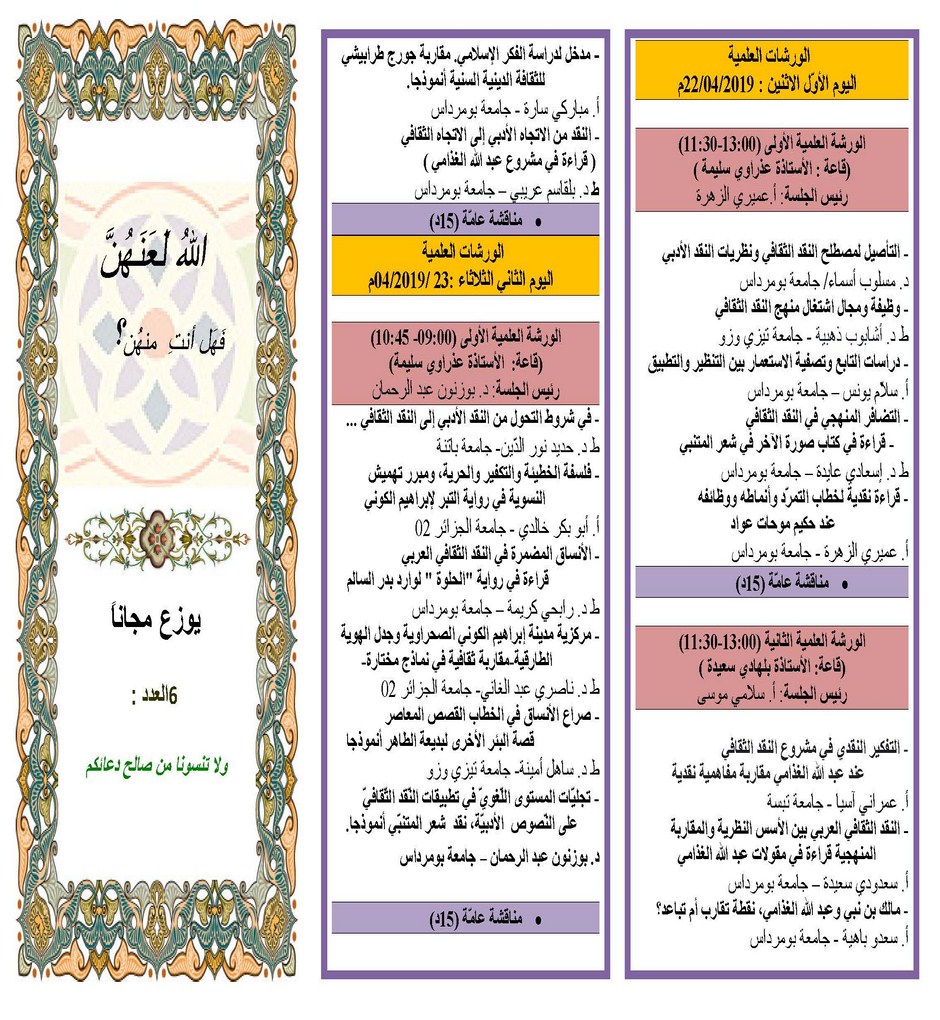 الورشات العلمية
اليوم الأوّل الاثنين : 22/04/2019م
الورشة العلمية الأولى (13:00-11:30)
(قاعة : الأستاذة عذراوي سليمة )
رئيس الجلسة: أ.عميري الزهرة
- التأصيل لمصطلح النقد الثقافي ونظريات النقد الأدبي
د. مسلوب أسماء/ جامعة بومرداس
- وظيفة ومجال اشتغال منهج النقد الثقافي
ط د. أشابوب ذهبية - جامعة تيزي وزو
- دراسات التابع وتصفية الاستعمار بين التنظير والتطبيق
أ. سلام يونس – جامعة بومرداس
- التضافر المنهجي في النقد الثقافي
- قراءة في كتاب صورة الآخر في شعر المتنبي
ط د. إسعادي عايدة – جامعة بومرداس
- قراءة نقدية لخطاب التمرّد وأنماطه ووظائفه
عند حكيم موحات عواد
أ. عميري الزهرة - جامعة بومرداس
• مناقشة عامّة (15د)
الورشة العلمية الثانية (13:00-11:30)
(قاعة: الأستاذة بلهادي سعيدة )
رئيس الجلسة: أ. سلامي موسى
- التفكير النقدي في مشروع النقد الثقافي
عند عبد الله الغذامي مقاربة مفاهمية نقدية
أ. عمراني آسيا - جامعة تبسة
- النقد الثقافي العربي بين الأسس النظرية والمقاربة
المنهجية قراءة في مقولات عبد الله الغذامي
أ. سعدودي سعيدة – جامعة بومرداس
- مالك بن نبي وعبد الله الغذامي، نقطة تقارب أم تباعد؟
أ. سعدو باهية - جامعة بومرداس
- مدخل لدراسة الفكر الإسلامي. مقاربة جورج طرابيشي
للثقافة الدينية السنية أنموذجا.
أ. مباركي سارة - جامعة بومرداس
- النقد من الاتجاه الأدبي إلى الاتجاه الثقافي
( قراءة في مشروع عبد الله الغذامي )
ط د. بلقاسم عريبي – جامعة بومرداس
• مناقشة عامّة (15د)
الورشات العلمية
اليوم الثاني الثلاثاء :23 /04/2019م
الورشة العلمية الأولى (09:00- 10:45)
(قاعة: الأستاذة عذراوي سليمة)
رئيس الجلسة: د. بوزنون عبد الرحمان
- في شروط التحول من النقد الأدبي إلى النقد الثقافي ...
ط د. حديد نور الدّين- جامعة باتنة
- فلسفة الخطيئة والتكفير والحرية، ومبرر تهميش
النسوية في رواية التبر لإبراهيم الكوني
أ. أبو بكر خالدي - جامعة الجزائر 02
- الأنساق المضمرة في النقد الثقافي العربي
قراءة في رواية "الحلوة " لوارد بدر السالم
ط د. رابحي كريمة – جامعة بومرداس
- مركزية مدينة إبراهيم الكوني الصحراوية وجدل الهوية
الطارقية-مقاربة ثقافية في نماذج مختارة-
ط د. ناصري عبد الغاني- جامعة الجزائر 02
- صراع الأنساق في الخطاب القصص المعاصر
قصة البئر الأخرى لبديعة الطاهر أنموذجا
ط د. ساهل أمينة- جامعة تيزي وزو
- تجليّات المستوى اللّغويّ في تطبيقات النّقد الثّقافيّ
على النّصوص الأدبيّة، نقد شعر المتنبّي أنموذجا.
د. بوزنون عبد الرحمان – جامعة بومرداس
• مناقشة عامّة (15د)
اللهُ لَعَنَهُنَّ
فَهَل أنتِ منهُن؟
يوزع مجاناً
6العدد :
ولا تنسونا من صالح دعائكم